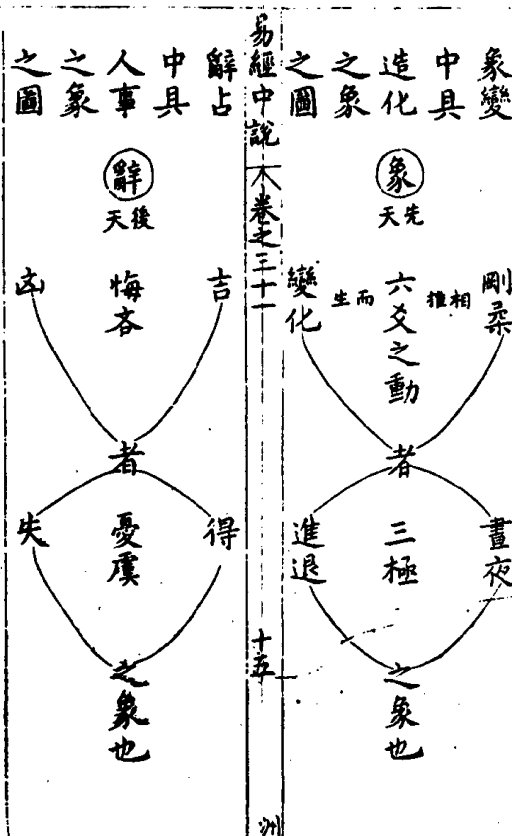 象變
中具
造化
之象
之圖
象
先天
剛柔
相推
六爻之動
而生
變化
者
晝夜
三極
進退
之象也
易經中說
卷之三十一
十五
辭占
中具
人事
之象
之圖
辭
後天
吉
悔吝
凶
者
得
憂虞
失
之象也